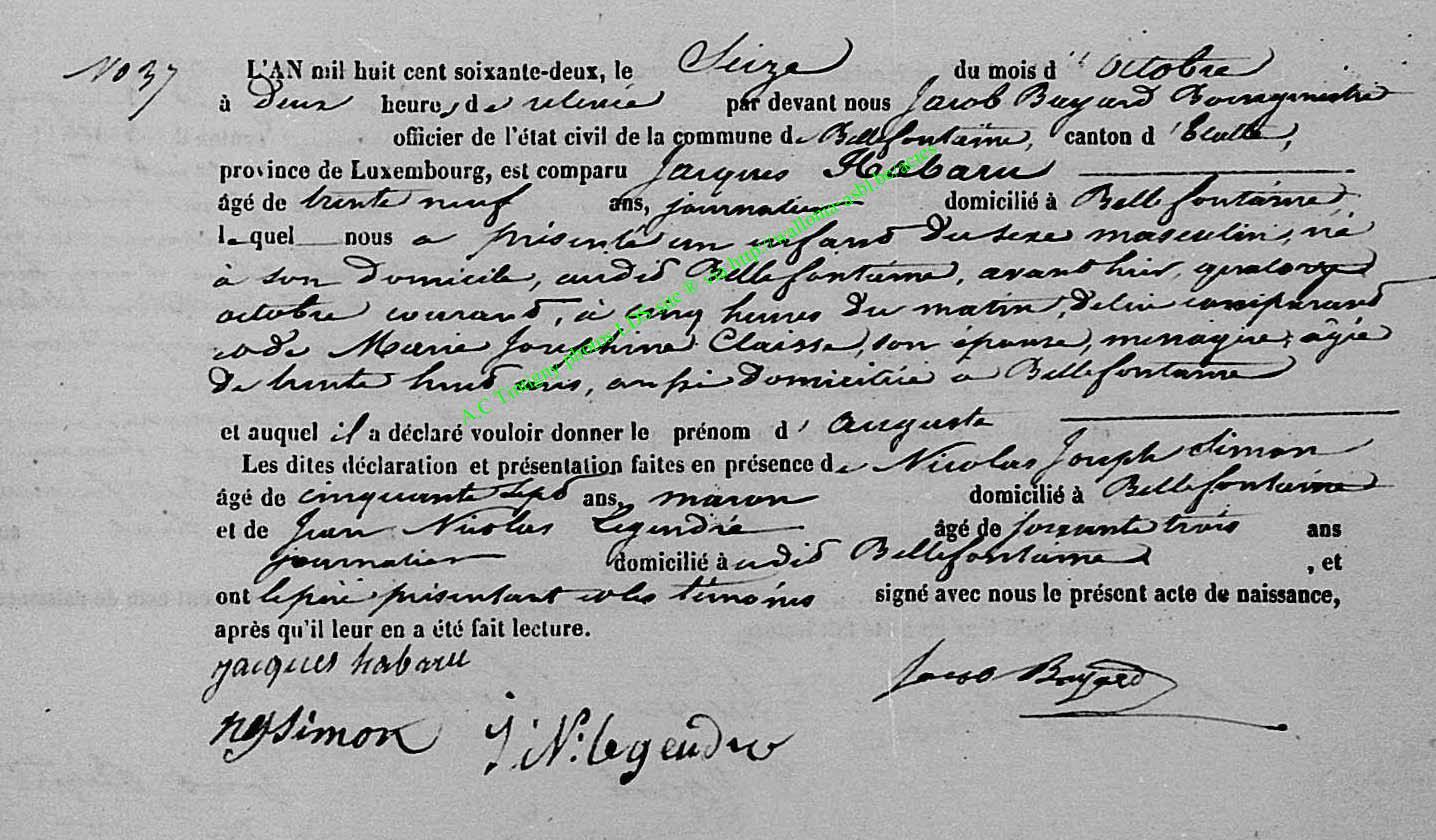 No 37
L'AN mil huit cent soixante-deux, le Seize du mois d'octobre
à deux heures de relevée par devant nous Jacob Bayard Bourgmestre
officier de l'état civil de la commune de Bellefontaine, canton d'Etalle,
province de Luxembourg, est comparu Jacques Habaru
âgé de trente neuf ans, journalier domicilié à Bellefontaine
lequel nous a présenté un enfant du sexe masculin, né
à son domicile, audit Bellefontaine, avant hier, quatorze
octobre courant, à cinq heures du matin, de lui comparant
et de Marie Joséphine Claisse, son épouse, ménagère, âgée
de trente huit ans, aussi domiciliée à Bellefontaine
et auquel il a déclaré vouloir donner le prénom d'auguste
Les dites déclaration et présentation faites en présence de Nicolas Joseph Simon
âgé de cinquante sept ans, maçon domicilié à Bellefontaine
et de Jean Nicolas Legendre âgé de soixante trois ans
journalier domicilié audit Bellefontaine, et
ont le père présentant et les témoins signé avec nous le présent acte de naissance,
après qu'il leur en a été fait lecture.
jacques habaru
Jacob Bayard
nj Simon
J. N. legendre
A.C Tintigny photos LDS site ®